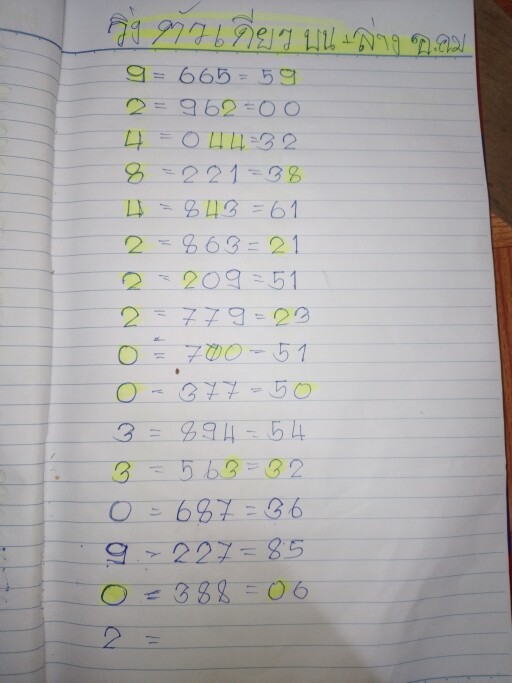 วิ่ง ตัวเดียว บน - ล่าง
9 = 665 = 59
2 = 962 = 00
4 = 044 = 32
8 = 221 = 38
4 = 843 = 61
2 = 863 = 21
2 = 209 = 51
2 = 779 = 23
0 = 700 - 51
0 - 377 = 50
3 = 894 - 54
3 = 563 = 32
0 = 687 = 36
9 - 227 = 85
0 = 388 = 06
2 =